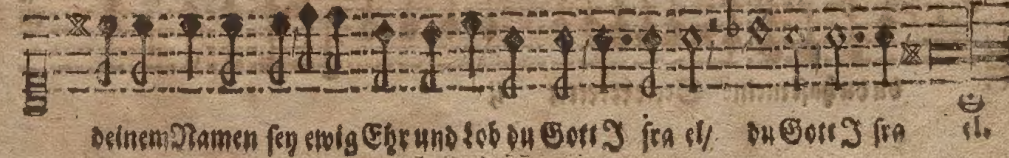 deinem Namen sey ewig Ehr und Lob du Gott J sra el/ du Gott J sra el.